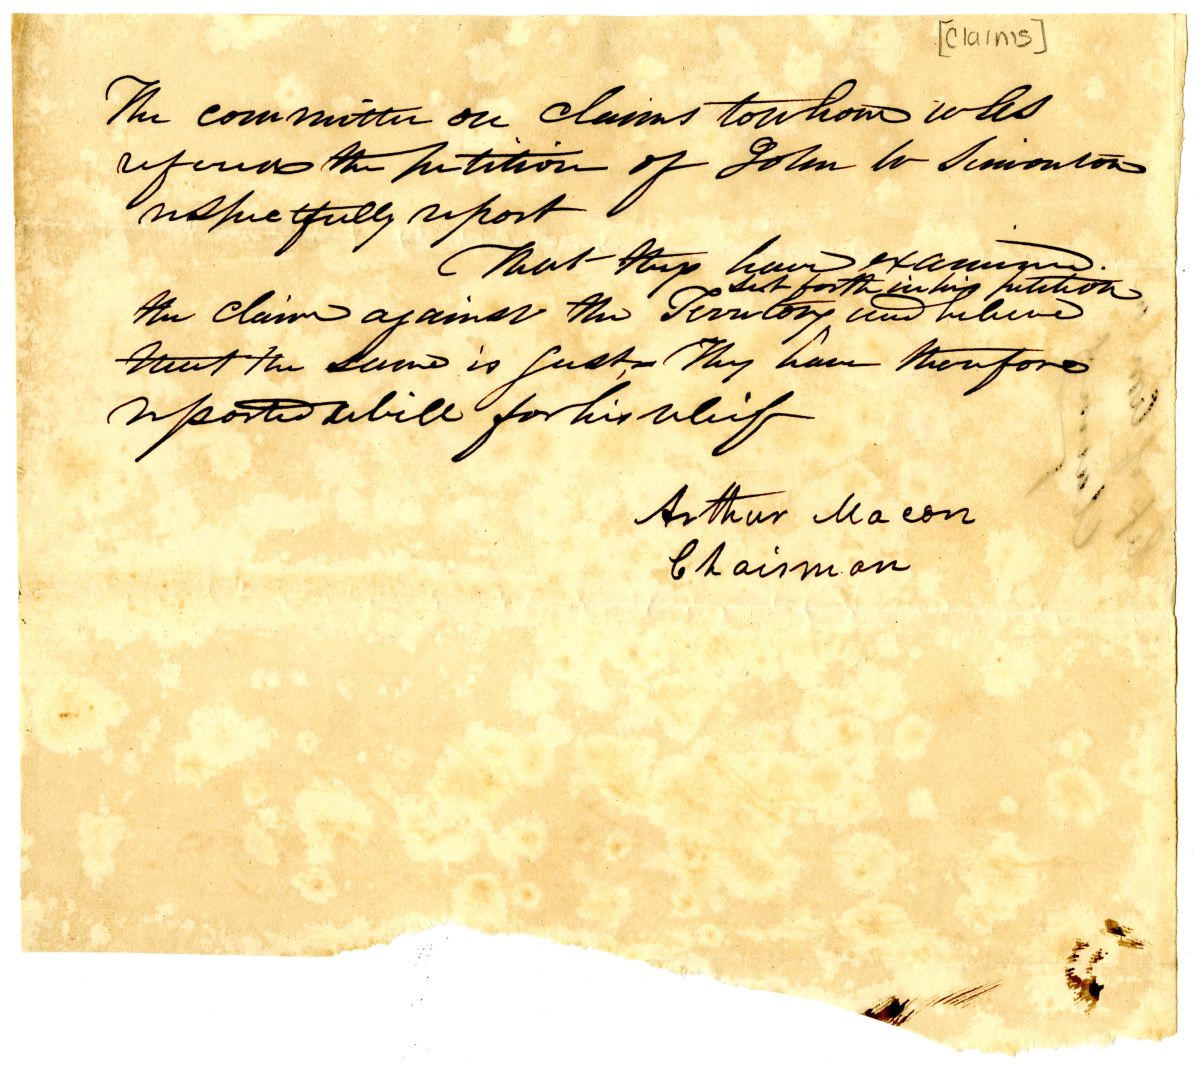 [Claims]
The committee on claims to whom was
refered the petition of John W Simonton
respectfully report
That they have examine
set forth in his petition
the claim against the Territory and believe
that the same is just. They have therefore
reported a bill for his relief
Arthur Macon
Chairman